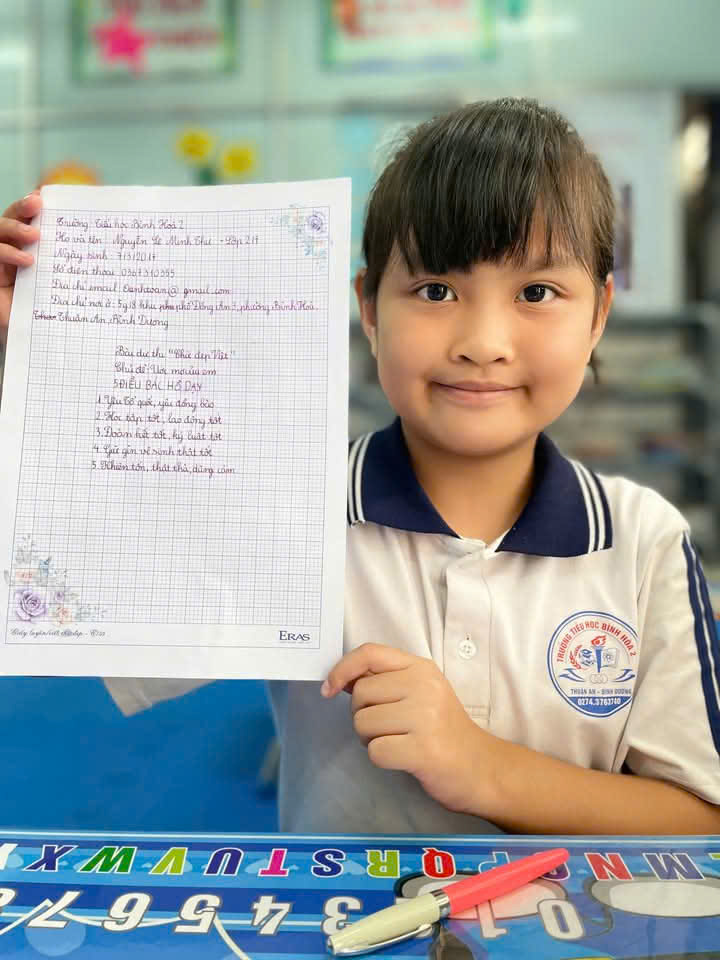 Trường: Tiểu học Bình Hoà 2
Họ và tên : Nguyễn Lê Minh Thư - Lớp 2/7
Ngày sinh : 7/3/2017
Số điện thoại 0367310355
Địa chỉ email: @gmail.com
Địa chỉ nơi ở: khu phố Đông An 3, phường Bình Hoà,
Thuận An, Bình Dương
Bài dự thi "Chữ đẹp Việt"
Chủ đề: Ước mơ của em
5 ĐIỀU BÁC HỒ DẠY
1. Yêu Tổ quốc, yêu đồng bào
2. Học tập tốt, lao động tốt
3. Đoàn kết tốt, kỷ luật tốt
4. Giữ gìn vệ sinh thật tốt
5. Khiêm tốn, thật thà, dũng cảm
Giấy luyện viết chữ đẹp -
ERAS
TRƯỜNG TIỂU HỌC BÌNH HÒA 2
THUẬN AN - BÌNH DƯƠNG
0274.3763740
X W V U T S R Q P O N M L
8 7 6 5 4 3 2 1 0